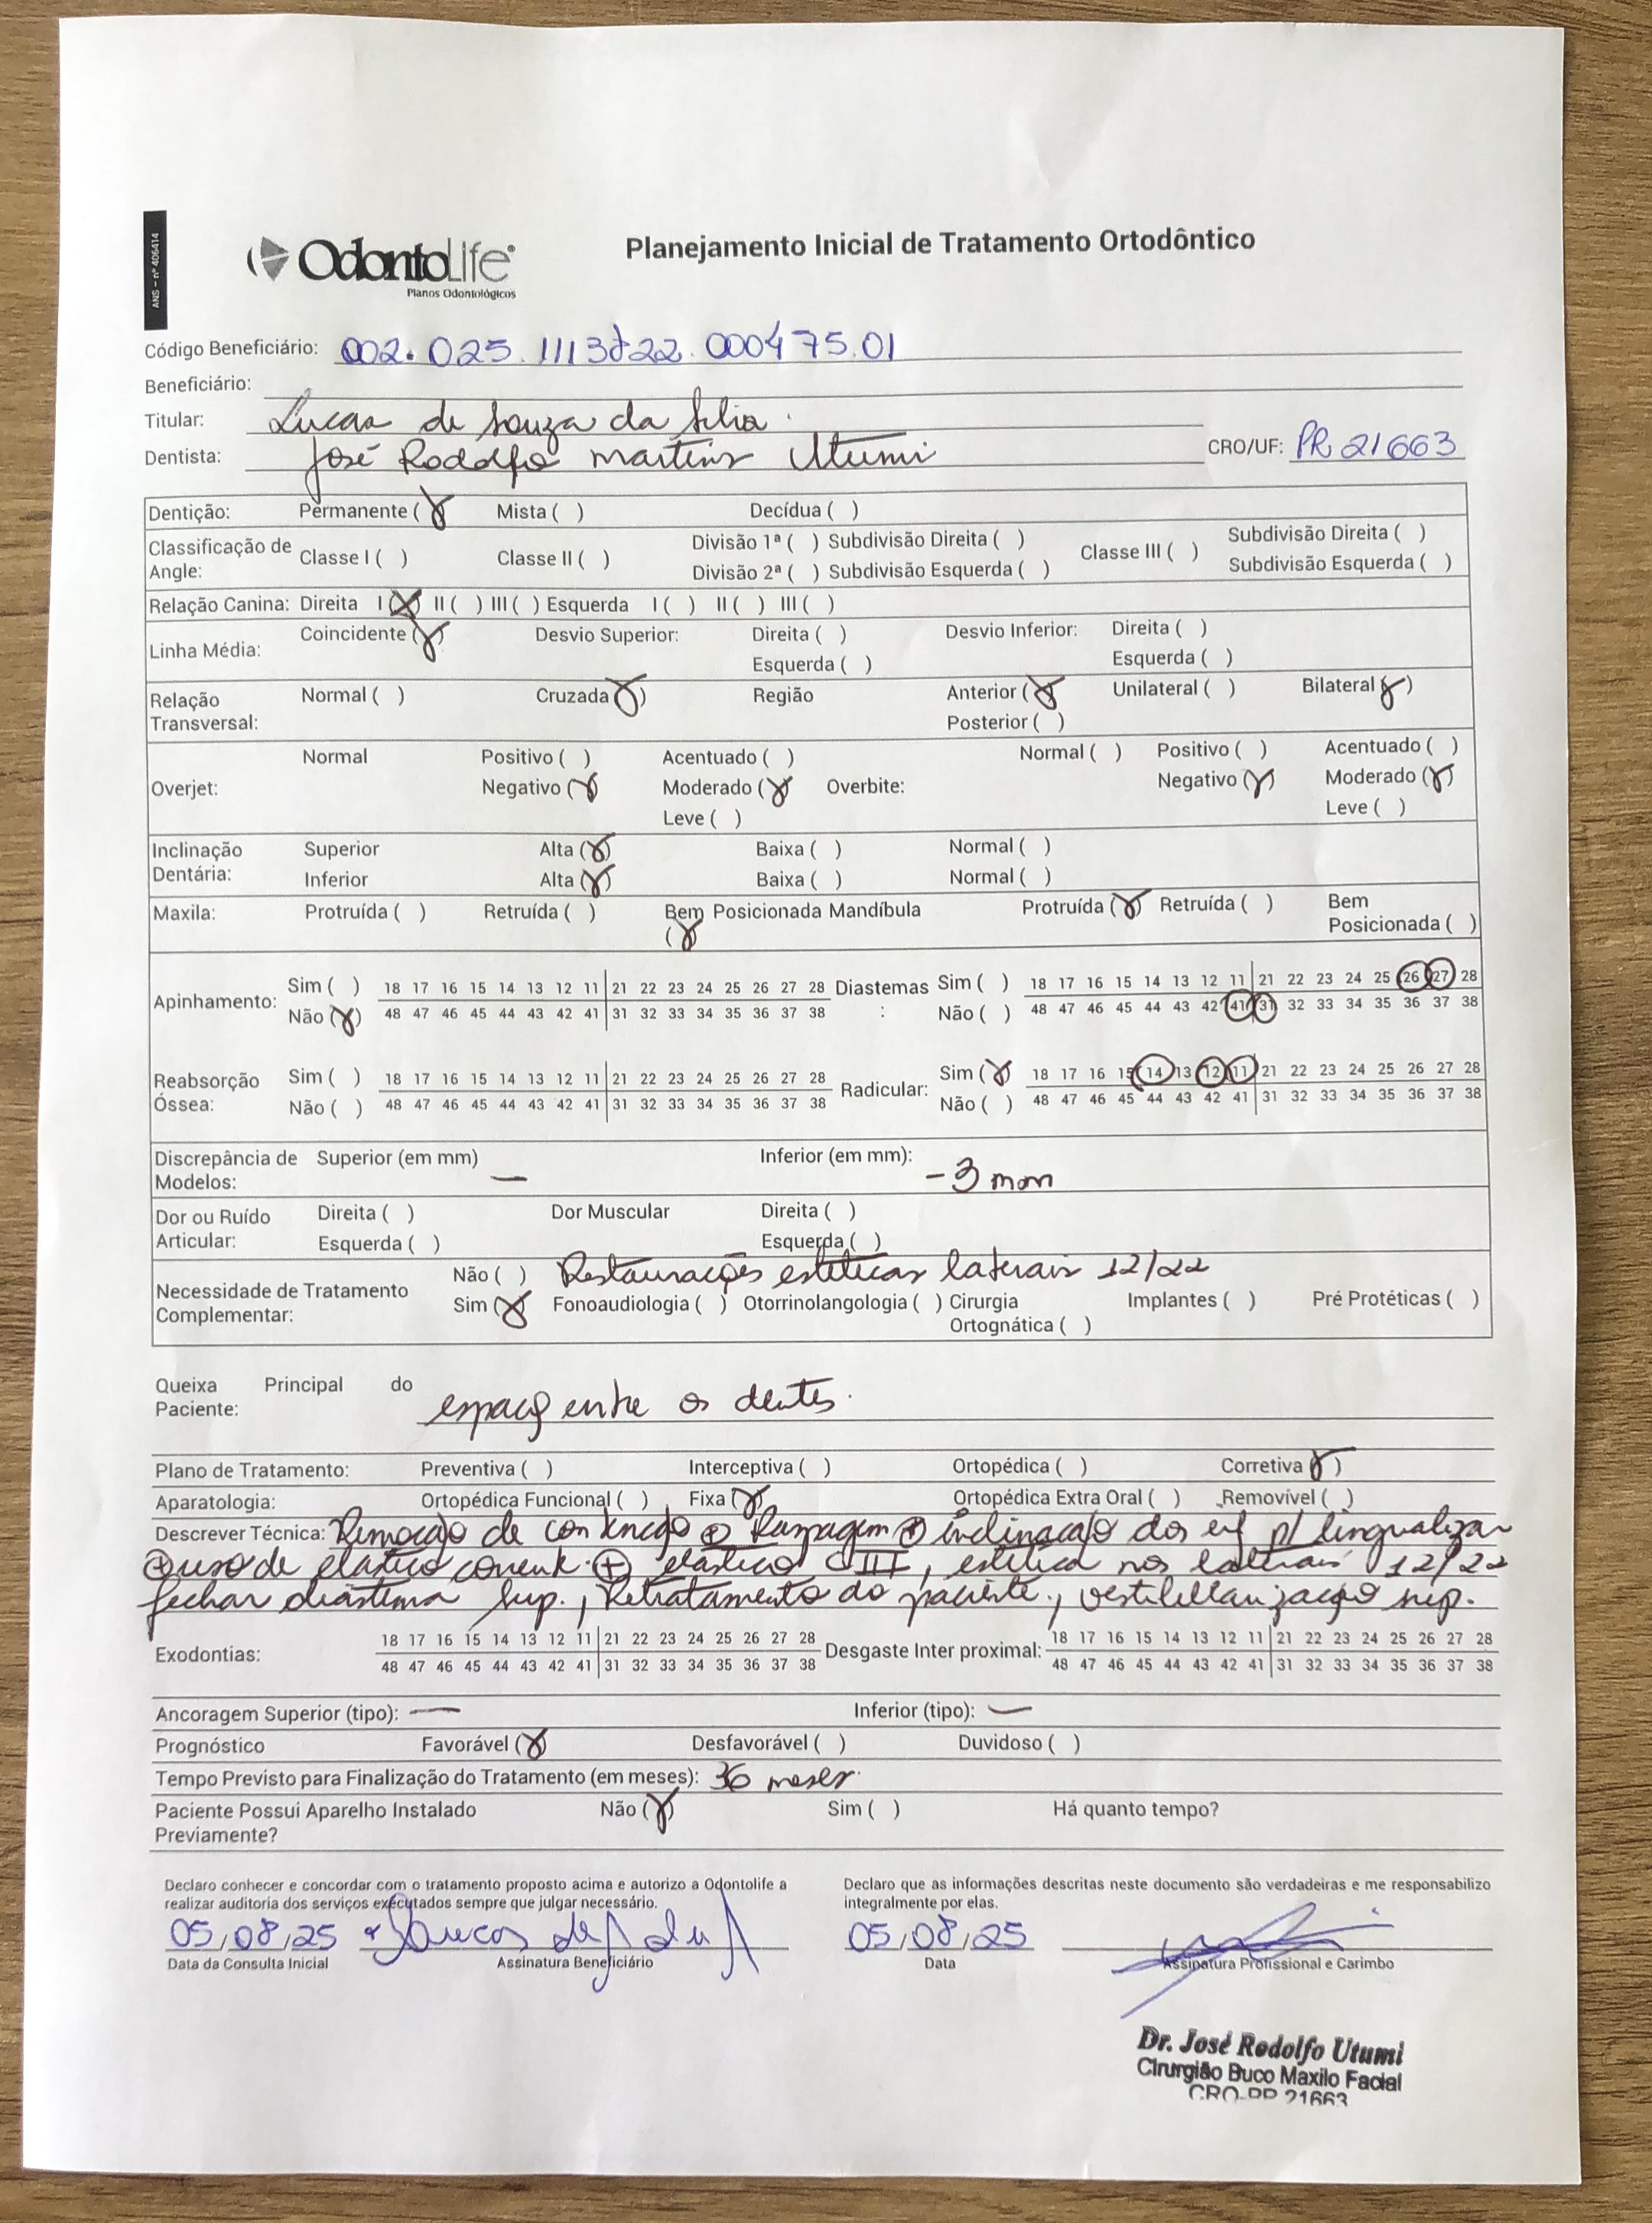 ANS – nº 406414
OdontoLife
Planos Odontológicos
Planejamento Inicial de Tratamento Ortodôntico
Código Beneficiário: 002.025.1113822.000475.01
Beneficiário:
Titular: Lucas de Souza da Silva.
Dentista: José Rodolfo Martins Utumi CRO/UF: PR 21663
Dentição: Permanente (X) Mista ( ) Decídua ( )
Classificação de Angle: Classe I ( ) Classe II ( ) Divisão 1ª ( ) Subdivisão Direita ( ) Classe III ( ) Subdivisão Direita ( )
Divisão 2ª ( ) Subdivisão Esquerda ( ) Subdivisão Esquerda ( )
Relação Canina: Direita I (X) II ( ) III ( ) Esquerda I ( ) II ( ) III ( )
Linha Média: Coincidente (X) Desvio Superior: Direita ( ) Desvio Inferior: Direita ( )
Esquerda ( ) Esquerda ( )
Relação Transversal: Normal ( ) Cruzada (X) Região Anterior (X) Unilateral ( ) Bilateral (X)
Posterior ( )
Normal Positivo ( ) Acentuado ( ) Normal ( ) Positivo ( ) Acentuado ( )
Overjet: Negativo (X) Moderado (X) Overbite: Negativo (X) Moderado (X)
Leve ( ) Leve ( )
Inclinação Superior Alta (X) Baixa ( ) Normal ( )
Dentária: Inferior Alta (X) Baixa ( ) Normal ( )
Maxila: Protruída ( ) Retruída ( ) Bem Posicionada (X) Mandíbula Protruída (X) Retruída ( ) Bem Posicionada ( )
Apinhamento: Sim ( ) 18 17 16 15 14 13 12 11 21 22 23 24 25 26 27 28 Diastemas: Sim ( ) 18 17 16 15 14 13 12 11 21 22 23 24 25 26 27 28
Não (X) 48 47 46 45 44 43 42 41 31 32 33 34 35 36 37 38 Não ( ) 48 47 46 45 44 43 42 41 31 32 33 34 35 36 37 38
Reabsorção Sim ( ) 18 17 16 15 14 13 12 11 21 22 23 24 25 26 27 28 Radicular: Sim (X) 18 17 16 15 14 13 12 11 21 22 23 24 25 26 27 28
Óssea: Não ( ) 48 47 46 45 44 43 42 41 31 32 33 34 35 36 37 38 Não ( ) 48 47 46 45 44 43 42 41 31 32 33 34 35 36 37 38
Discrepância de Modelos: Superior (em mm) — Inferior (em mm): -3 mm
Dor ou Ruído Direita ( ) Dor Muscular Direita ( )
Articular: Esquerda ( ) Esquerda ( )
Não ( ) Restaurações estéticas laterais 12/22
Necessidade de Tratamento Complementar: Sim (X) Fonoaudiologia ( ) Otorrinolangologia ( ) Cirurgia Ortognática ( ) Implantes ( ) Pré Protéticas ( )
Queixa Principal do Paciente: espaço entre os dentes.
Plano de Tratamento: Preventiva ( ) Interceptiva ( ) Ortopédica ( ) Corretiva (X)
Aparatologia: Ortopédica Funcional ( ) Fixa (X) Ortopédica Extra Oral ( ) Removível ( )
Descrever Técnica: Remoção de contenção ⊕ Raspagem ⊕ inclinação dos inf p/ lingualizar
⊕ uso de elástico corrente ⊕ elástico CIII, estética nos laterais 12/22
fechar diastema sup., Retratamento do paciente, sup.
Exodontias: 18 17 16 15 14 13 12 11 21 22 23 24 25 26 27 28 Desgaste Inter proximal: 18 17 16 15 14 13 12 11 21 22 23 24 25 26 27 28
48 47 46 45 44 43 42 41 31 32 33 34 35 36 37 38 48 47 46 45 44 43 42 41 31 32 33 34 35 36 37 38
Ancoragem Superior (tipo): — Inferior (tipo): —
Prognóstico Favorável (X) Desfavorável ( ) Duvidoso ( )
Tempo Previsto para Finalização do Tratamento (em meses): 36 meses
Paciente Possui Aparelho Instalado Previamente? Não (X) Sim ( ) Há quanto tempo?
Declaro conhecer e concordar com o tratamento proposto acima e autorizo a Odontolife a
realizar auditoria dos serviços executados sempre que julgar necessário.
Declaro que as informações descritas neste documento são verdadeiras e me responsabilizo
integralmente por elas.
05/08/25 05/08/25
Data da Consulta Inicial Assinatura Beneficiário Data Assinatura Profissional e Carimbo
Dr. José Rodolfo Utumi
Cirurgião Buco Maxilo Facial
CRO-PR 21663